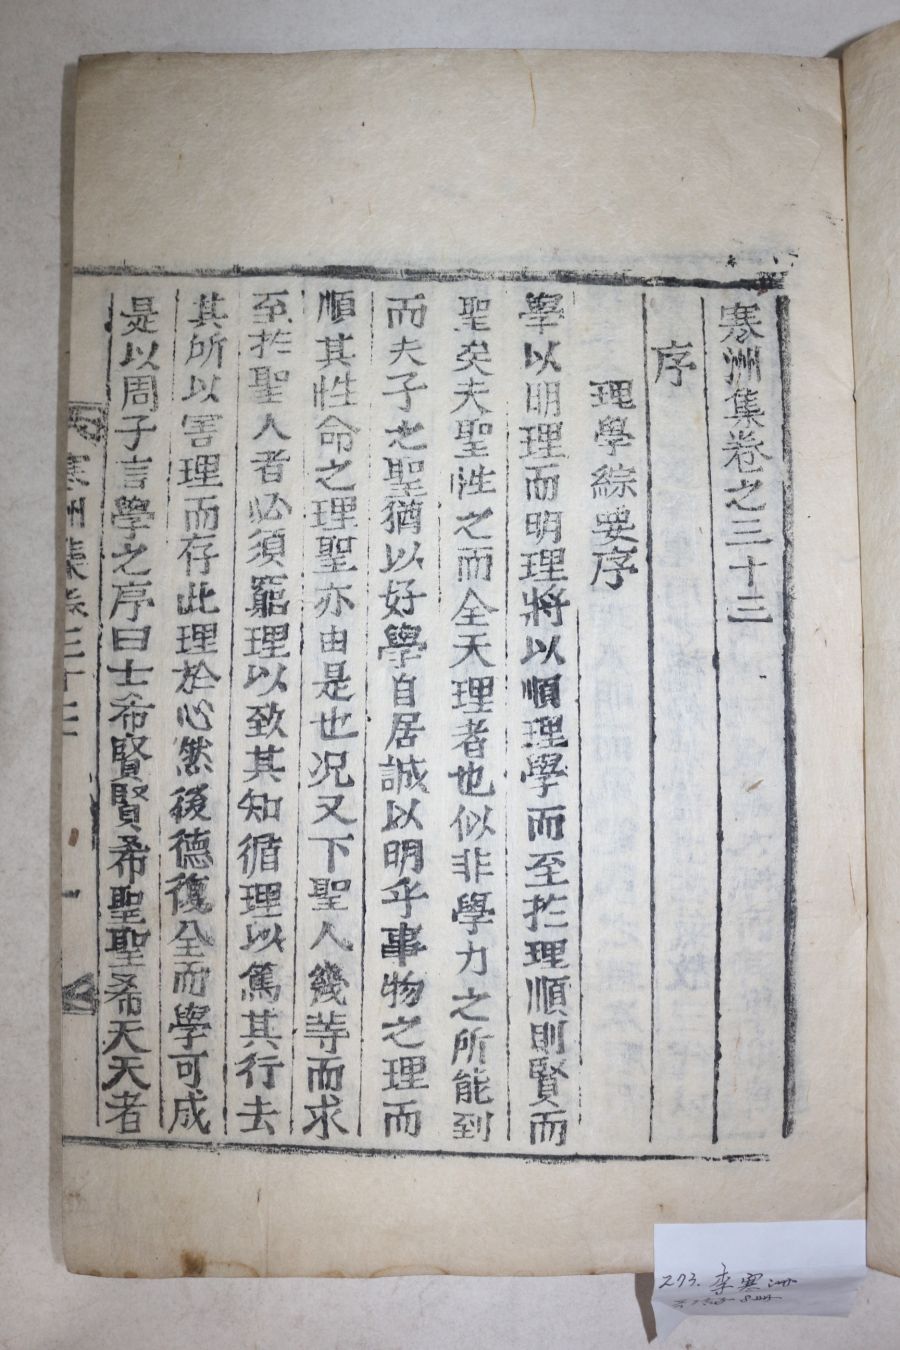 寒洲集卷之三十三
序
理學綜要序
學以明理而明理將以順理學而至於理順則賢而
聖矣夫聖性之而全天理者也似非學力之所能到
而夫子之聖猶以好學自居誠以明乎事物之理而
順其性命之理聖亦由是也况又下聖人幾等而求
至於聖人者必須窮理以致其知循理以篤其行去
其所以害理而存此理於心然後德復全而學可成
是以周子言學之序曰士希賢賢希聖聖希天天者
寒洲集卷三十三 一
273. 李寒洲